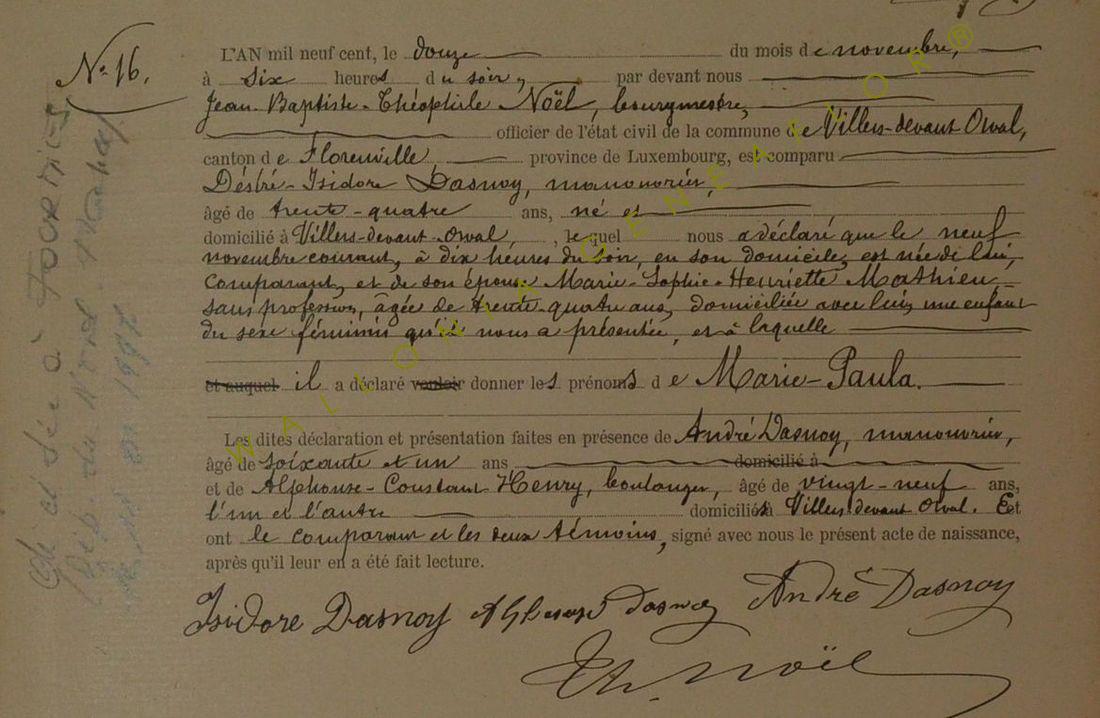 N° 16.
L'AN mil neuf cent, le douze du mois de novembre,
à six heures du soir, par devant nous
Jean-Baptiste-Théophile Noël, bourgmestre,
officier de l'état civil de la commune de Villers-devant Orval,
canton de Florenville, province de Luxembourg, est comparu
Désiré-Isidore Dasnoy, manouvrier,
âgé de trente-quatre ans, né et
domicilié à Villers-devant-Orval, lequel nous a déclaré que le neuf
novembre courant, à dix heures du soir, en son domicile, est née de lui,
comparant, et de son épouse Marie-Sophie-Henriette Mathieu
sans profession, âgée de trente-quatre ans, domiciliée avec lui, une enfant
du sexe féminin qu'il nous a présentée, et à laquelle
et auquel il a déclaré vouloir donner les prénoms de Marie-Paula.
Les dites déclaration et présentation faites en présence de André Dasnoy, manouvrier,
âgé de soixante et un ans domicilié à
et de Alphonse-Constant Henry, boulanger, âgé de vingt-neuf ans,
l'un et l'autre domiciliés à Villers devant Orval. Et
ont le comparant et les deux témoins, signé avec nous le présent acte de naissance,
après qu'il leur en a été fait lecture.
Isidore Dasnoy André Dasnoy
Th. Noël
WALLONIA GENEALOR®